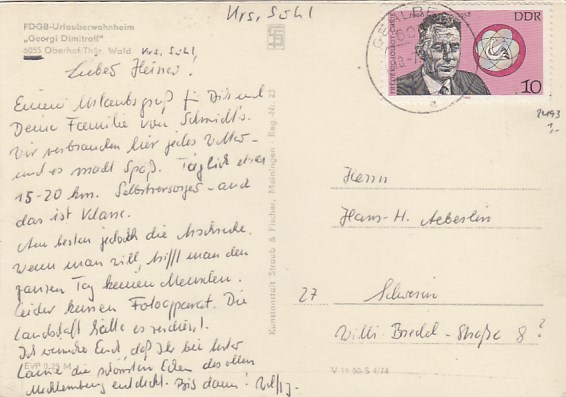 Krs. Suhl
FDGB-Urlauberwohnheim
„Georgi Dimitroff"
6055 Oberhof Thür. Wald Krs. Suhl,
Lieber Heiner!
Einen Urlaubsgruß für Dich und
Deine Familie von Schmidt's.
Wir verbrauchen hier jedes Wetter
und es macht Spaß. Täglich etwa
15-20 km. Selbstversorger – und
das ist Klasse.
Am besten jedoch die
Wenn man will, trifft man den
ganzen Tag keinen Menschen.
Leider keinen Fotoapparat. Die
Landschaft hätte es verdient.
Ich wünsche Euch, daß Ihr bei bester
Laune die schönsten Ecken des alten
Mecklenburg entdeckt. Bis dann!
EVP 0,25 M
Kunstanstalt Straub & Fischer, Meiningen · Reg.-Nr. 23
DDR
10
Herrn
Hans-H. Aeberlin
27 Schwerin
Willi-Bredel-Straße 8?
V 11 50 S 4/74